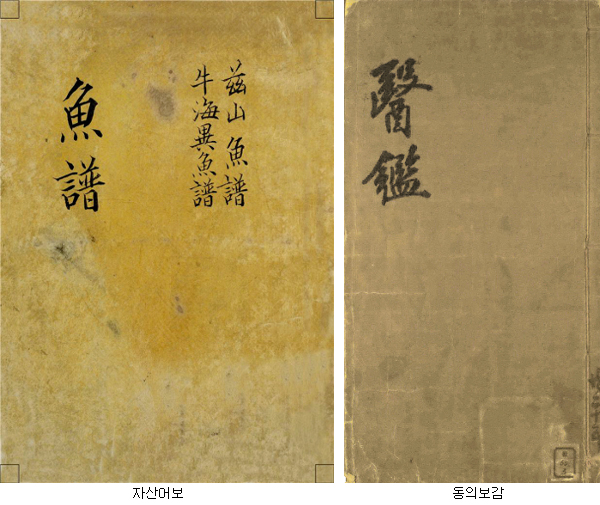 魚譜
玆山魚譜
牛海異魚譜
醫鑑
자산어보
동의보감